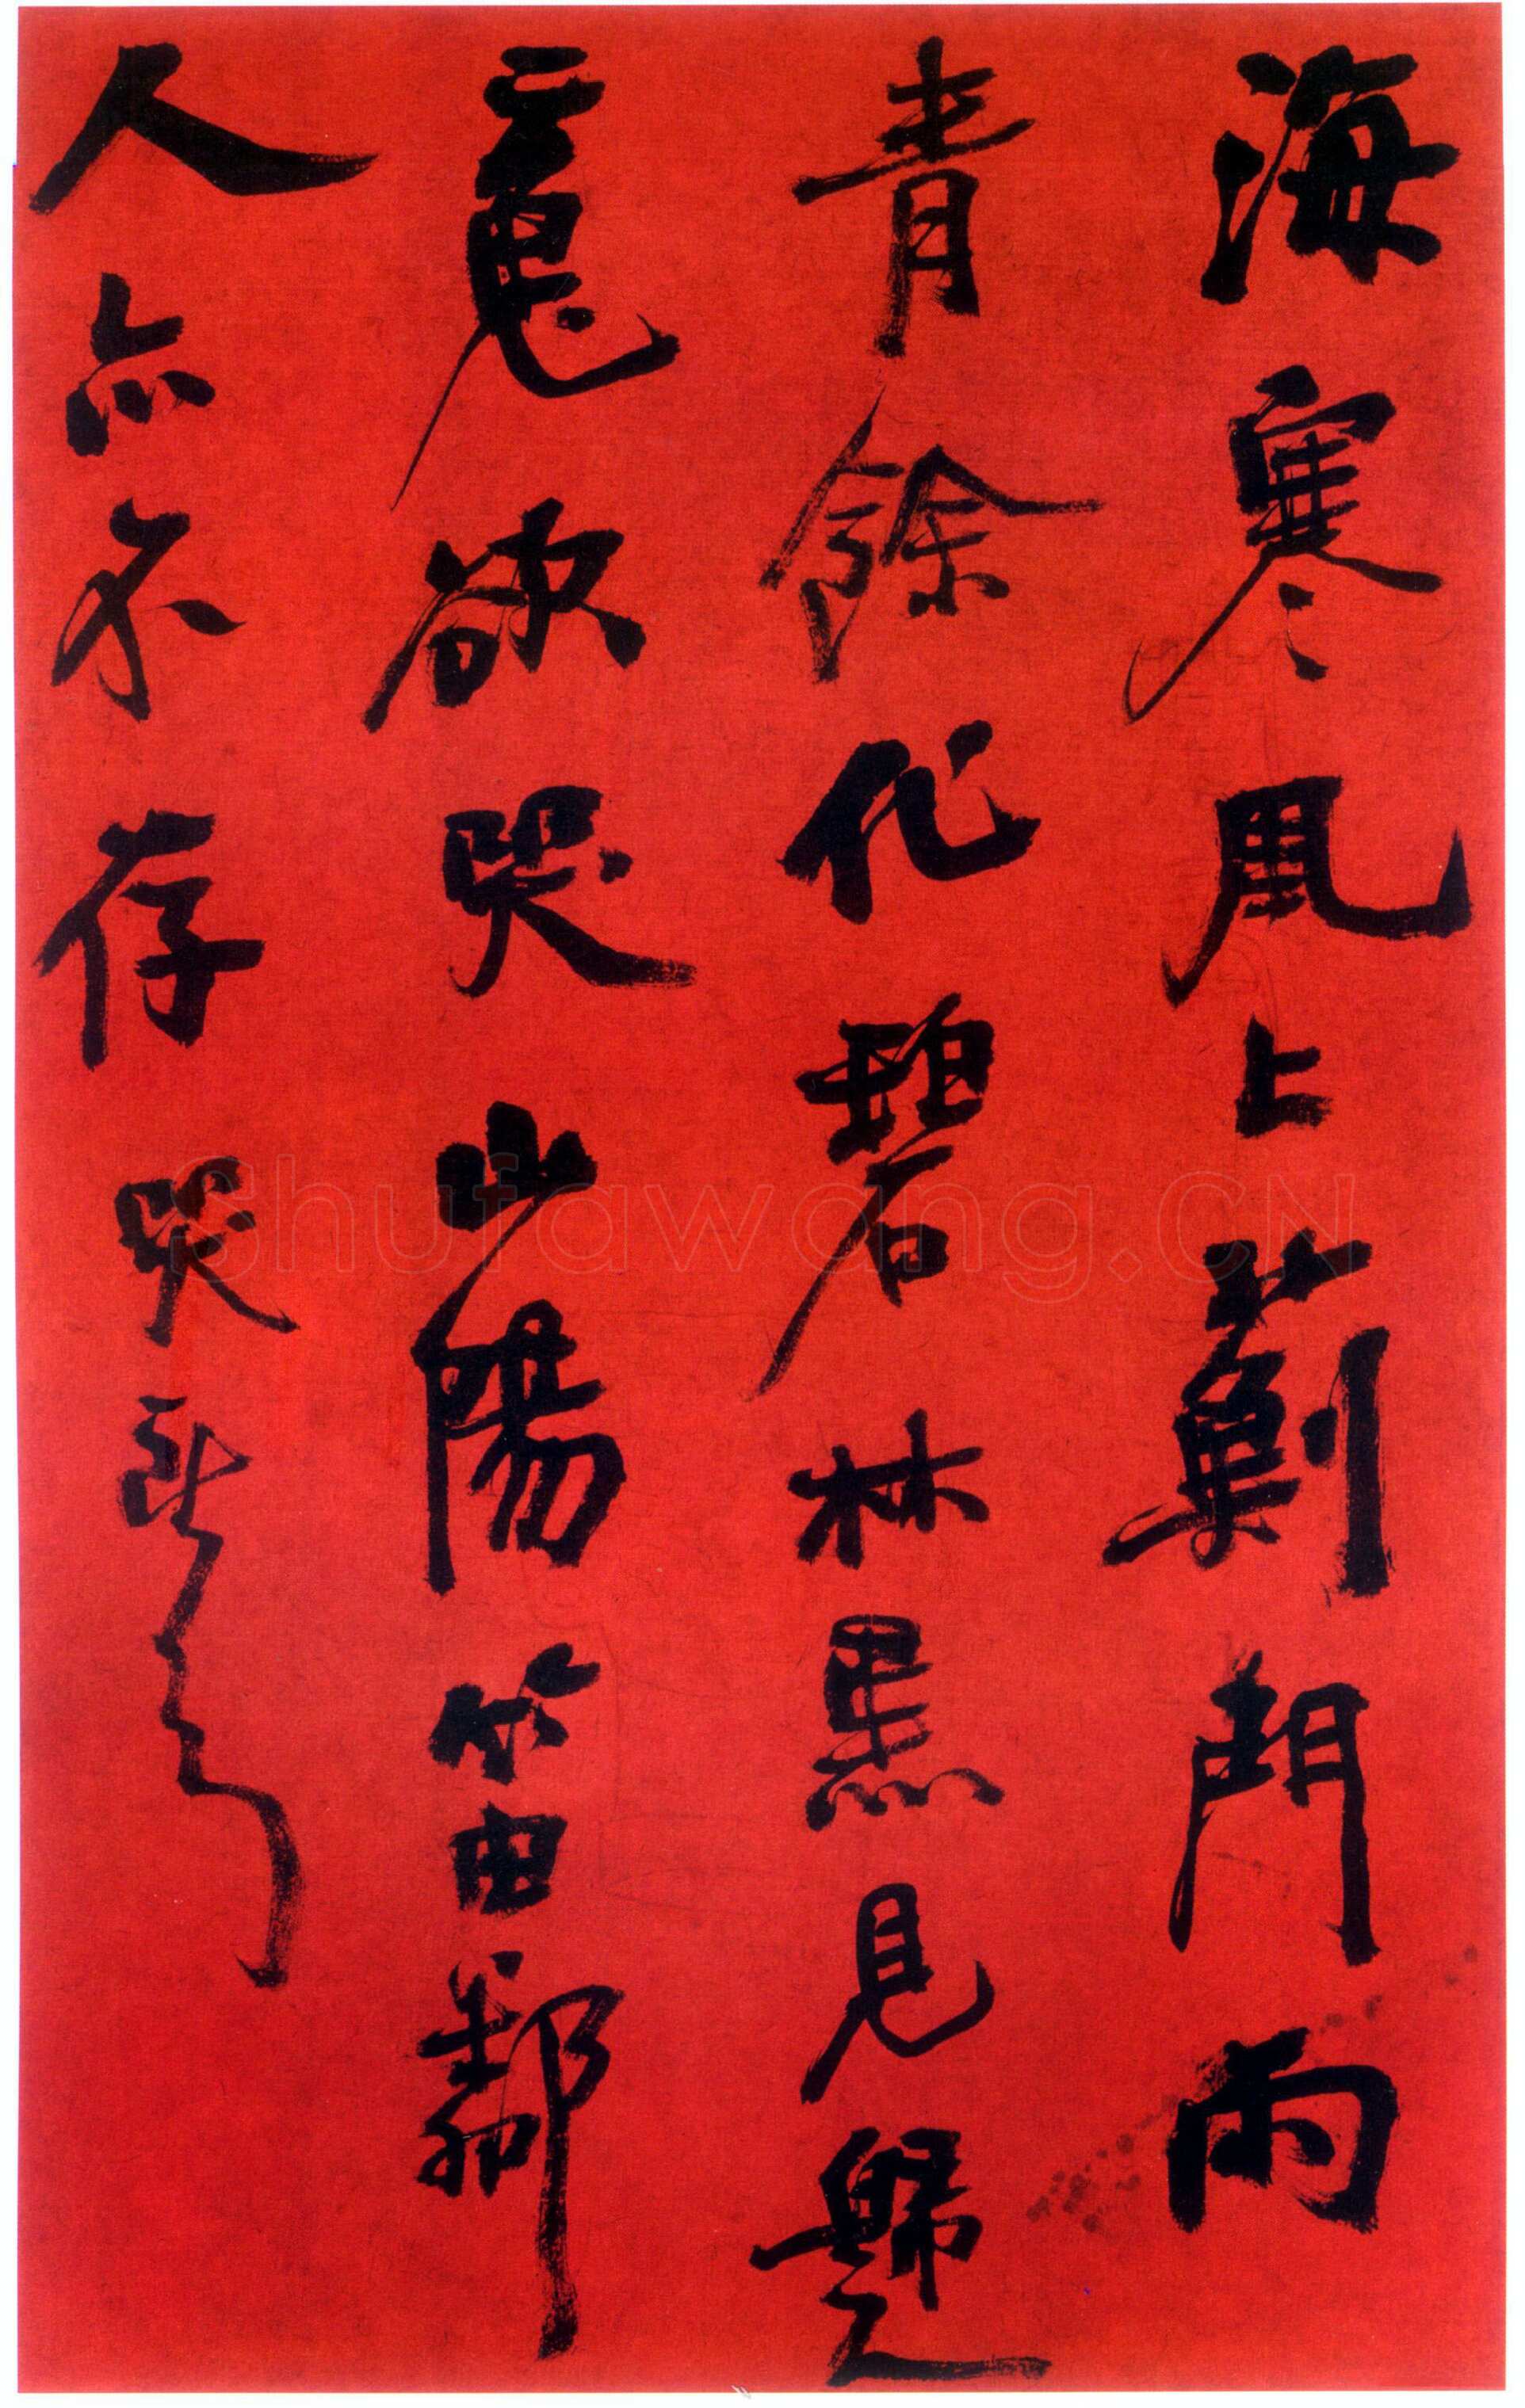 海寒風上薊門雨
青餘化碧林黑見歸
䰟欲哭山陽笛鄰
人亦不存哭
Shufawang.CN